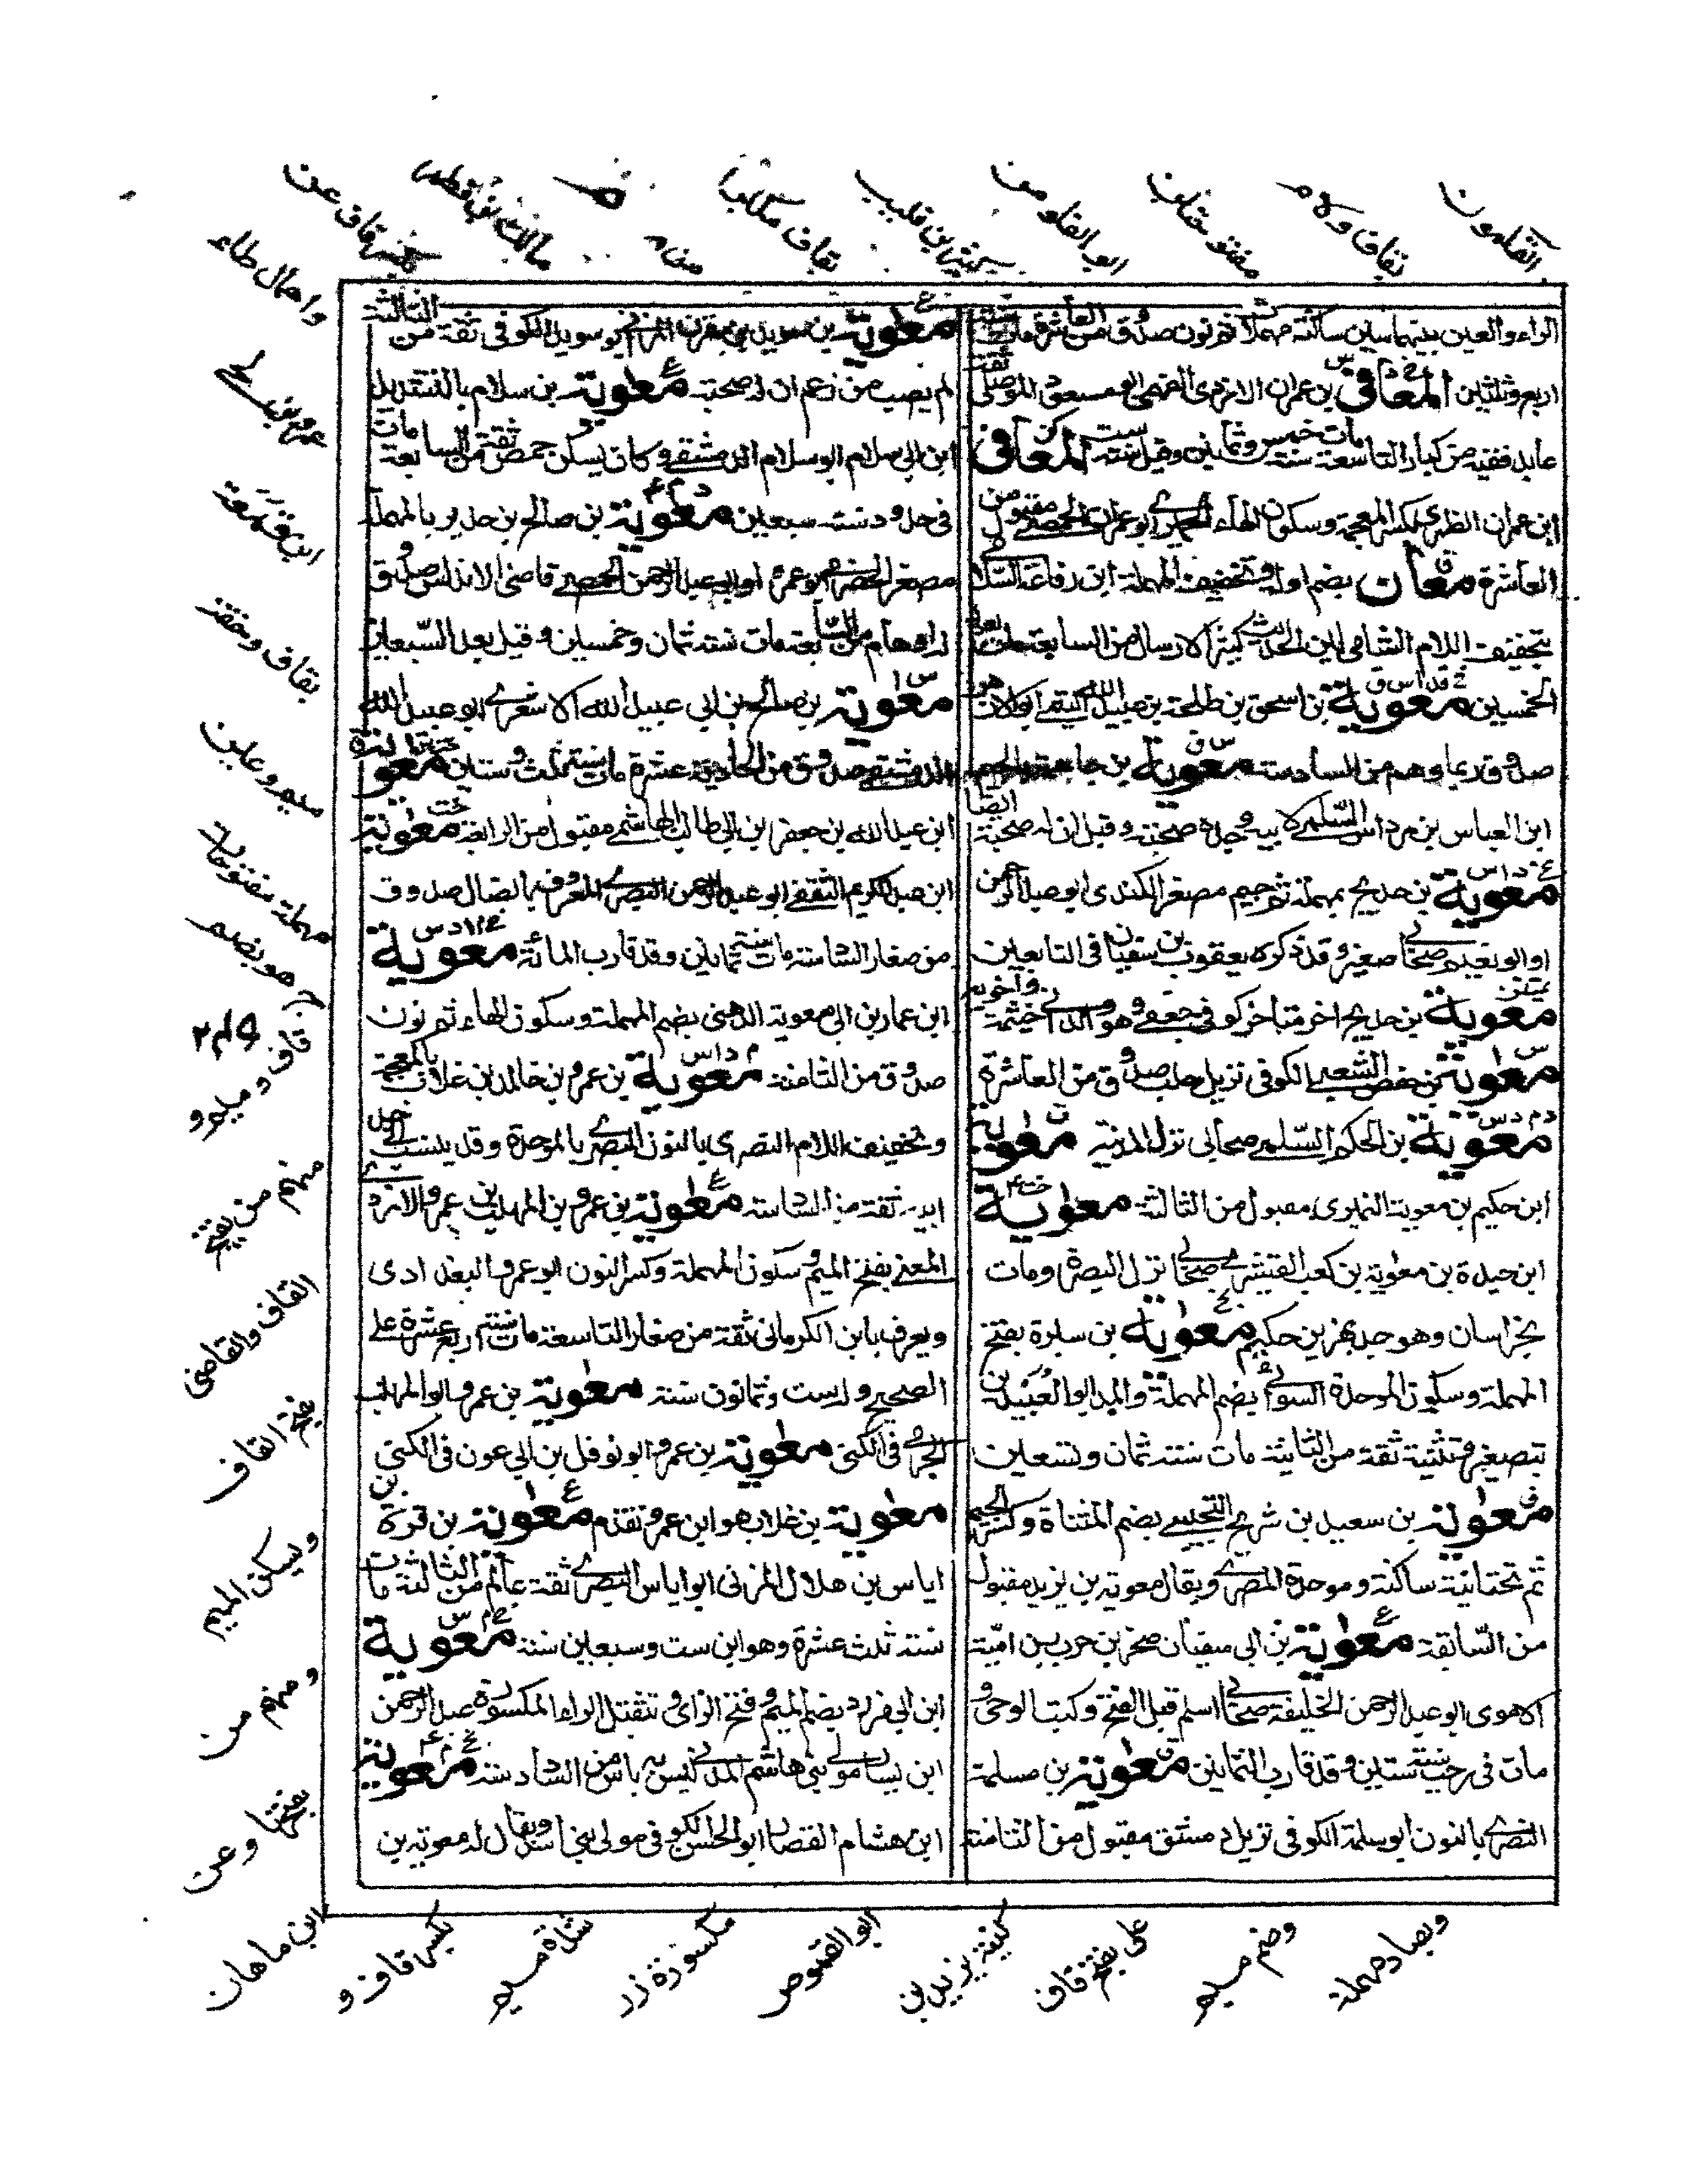 الراء والعين بينهما سين ساكنة مهملات ثم نون صدوق من العاشرة مات سنة
اربع وثلثين المعافى بن عمران الازدى الفهمى ابو مسعود الموصلى ثقة
عابد فقيه من كبار التاسعة مات سنة خمس وثمانين وقيل سنة ست المعافى
ابن عمران الظهرى بكسر المعجمة وسكون الهاء الحميرى ابو عمران الحمصى مقبول من
العاشرة معان بضم اوله وتخفيف المهملة ابن رفاعة السلامى
بتخفيف اللام الشامى لين الحديث كثير الارسال من السابعة مات بعد
الخمسين معوية بن اسحق بن طلحة بن عبيد الله التيمى ابو الازهر
صدوق ربما وهم من السادسة معوية بن جاهمة
ابن العباس بن مرداس السلمى لابيه وجده صحبة وقيل ان له صحبة ايضا
معوية بن حديج بمهملة ثم جيم مصغر الكندى ابو عبد الرحمن
او ابو نعيم صحابى صغير وقد ذكره يعقوب بن سفيان فى التابعين
معوية بن حديج اخر متاخر كوفى جعفى وهو والد ابى خيثمة واخويه
معوية بن حفص الشعبى الكوفى نزيل حلب صدوق من العاشرة
معوية بن الحكم السلمى صحابى نزل المدينة معوية
ابن حكيم بن معوية النميرى مقبول من الثالثة معوية
ابن حيدة بن معوية بن كعب القشيرى صحابى نزل البصرة ومات
بخراسان وهو جد بهز بن حكيم معوية بن سبرة بفتح
المهملة وسكون الموحدة السوائى بضم المهملة والمد ابو العبيدين
بتصغير وتثنية ثقة من الثانية مات سنة ثمان وتسعين
معوية بن سعيد بن شريح التجيبى بضم المثناة وكسر الجيم
ثم تحتانية ساكنة وموحدة المصرى ويقال معوية بن يزيد مقبول
من السابعة معوية بن ابى سفيان صخر بن حرب بن امية
الاموى ابو عبد الرحمن الخليفة صحابى اسلم قبل الفتح وكتب الوحى و
مات فى رجب سنة ستين وقد قارب الثمانين معوية بن مسلمة
النصرى بالنون ابو سلمة الكوفى نزيل دمشق مقبول من الثامنة
معوية بن سويد بن مقرن المزنى ابو سويد الكوفى ثقة من الثالثة
لم يصب من زعم ان له صحبة معوية بن سلام بالتشديد
ابن ابى سلام ابو سلام الدمشقى وكان يسكن حمص ثقة من السابعة مات
فى حدود سنة سبعين معوية بن صالح بن حدير بالمهملة
مصغر الحضرمى ابو عمرو او ابو عبد الرحمن الحمصى قاضى الاندلس صدوق
له اوهام من السابعة مات سنة ثمان وخمسين وقيل بعد السبعين
معوية بن صالح بن ابى عبيد الله الاشعرى ابو عبيد الله
الدمشقى صدوق من الحادية عشرة مات سنة ثلث وستين معوية
ابن عبد الله بن جعفر بن ابى طالب الهاشمى مقبول من الرابعة معوية
ابن عبد الكريم الثقفى ابو عبد الرحمن البصرى المعروف بالضال صدوق
من صغار السادسة مات سنة ثمانين وقد قارب المائة معوية
ابن عمار بن ابى معوية الدهنى بضم المهملة وسكون الهاء ثم نون
صدوق من الثامنة معوية بن عمرو بن خالد بن غلاب بالمعجمة
وتخفيف اللام النصرى بالنون البصرى بالموحدة وقد ينسب الى جد
ابيه ثقة من السادسة معوية بن عمرو بن المهلب بن عمرو الازدى
المعنى بفتح الميم وسكون المهملة وكسر النون ابو عمرو البغدادى
ويعرف بابن الكرمانى ثقة من صغار التاسعة مات سنة اربع عشرة على
الصحيح وله ست وثمانون سنة معوية بن عمرو ابو المهلب
الجرمى فى الكنى معوية بن عمرو ابو نوفل بن ابى عون فى الكنى
معوية بن غلاب هو ابن عمرو تقدم معوية بن قرة بن
اياس بن هلال المزنى ابو اياس البصرى ثقة عالم من الثالثة مات
سنة ثلث عشرة وهو ابن ست وسبعين سنة معوية
ابن ابى مزرد بضم الميم وفتح الزاى وتثقيل الراء المكسورة عبد الرحمن
ابن يسار مولى بنى هاشم المدنى ليس به باس من السادسة معوية
ابن هشام القصار ابو الحسن الكوفى مولى بنى اسد ويقال له معوية بن
بقاف ولام
مفتوحتان
واهمال طاء
ابن زمعة
مهملة مفتوحات
هو بضم
قاف وميم و
منهم من يفتح
القاف والقاضى
بفتح القاف
ويسكن الميم
ومنهم من
يفتحها وعن
ابن ماهان
بكسر قاف و
شدة ميم
مكسورة زر
ابو القموص
كنية يزيد بن
على بفتح قاف
وضم ميم
وبصاد مهملة